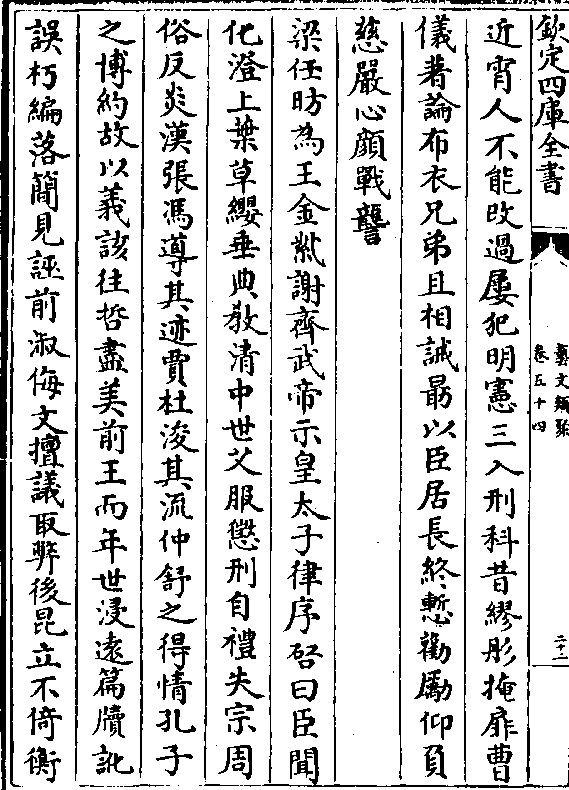 欽定四庫全書
藝文類聚
卷五十四
二十二
近宵人不能改過屢犯明憲三入刑科昔繆彤掩扉曹
儀著論布衣兄弟且相誡勗以臣居長終慙勸勵仰負
慈嚴心顔戰讋
梁任昉為王金紫謝齊武帝示皇太子律序啓曰臣聞
化澄上葉草纓垂典教清中世艾服懲刑自禮失宗周
俗反炎漢張馮導其迹賈杜浚其流仲舒之得情孔子
之博約故以義該往哲盡美前王而年世浸遠篇牘訛
誤朽編落簡見誣前淑侮文擅議取弊後昆立不倚衡